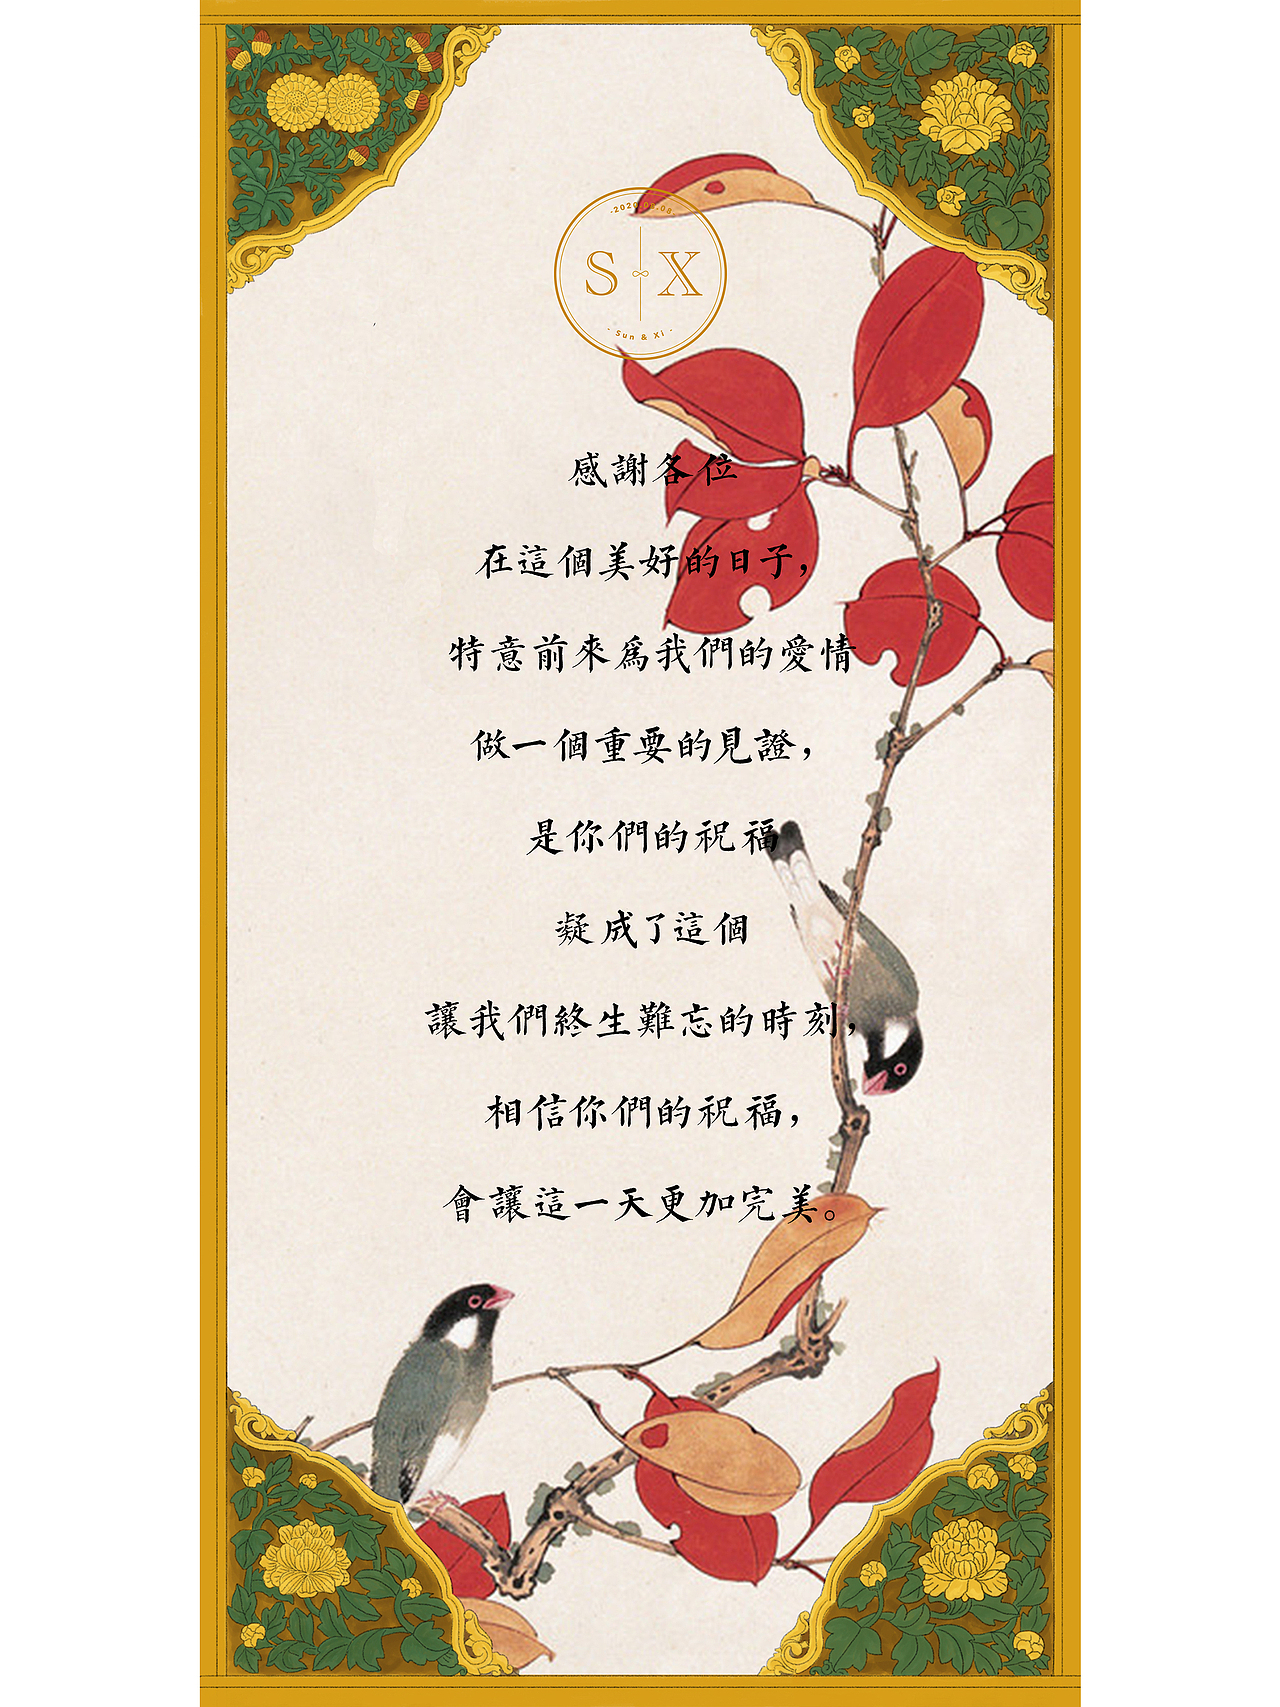 ·2020.08.08·
S∞X
· Sun & Xi ·
感謝各位
在這個美好的日子，
特意前來爲我們的愛情
做一個重要的見證，
是你們的祝福
凝成了這個
讓我們終生難忘的時刻，
相信你們的祝福，
會讓這一天更加完美。